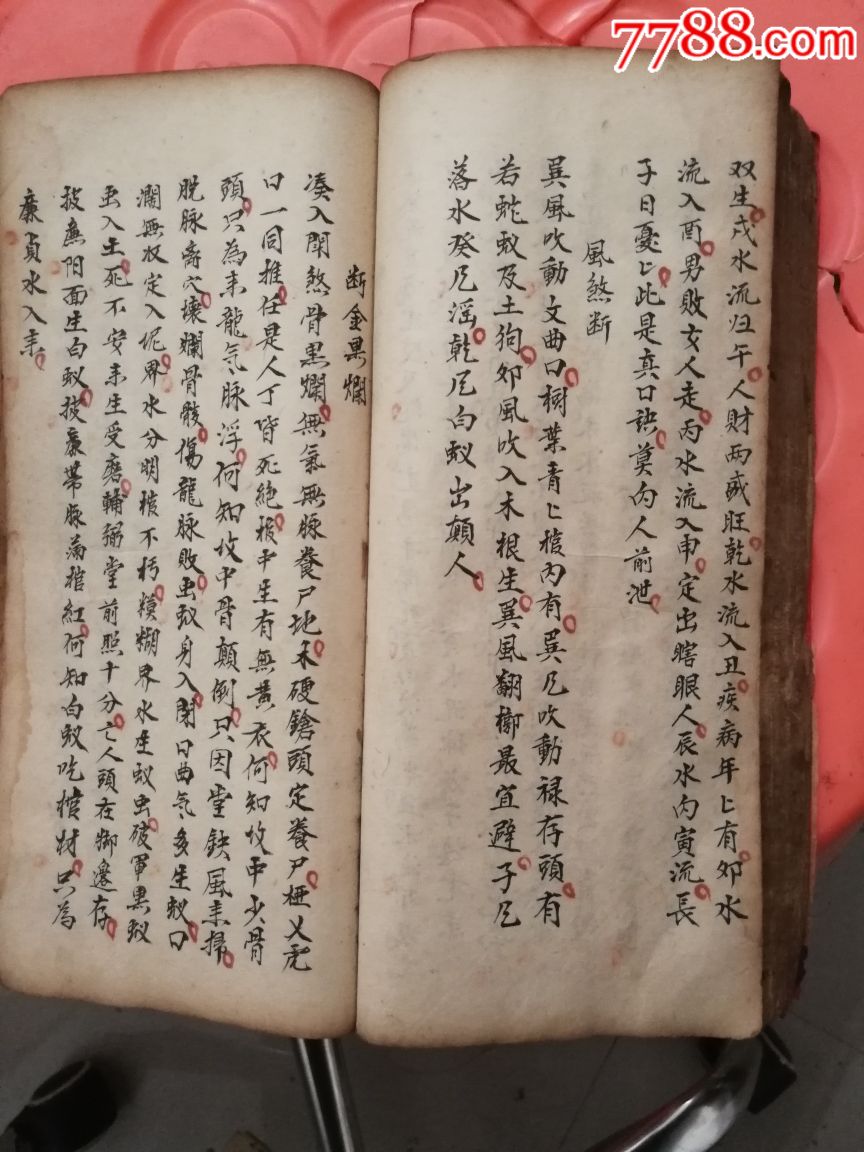 7788.com
双生戌水流归午人財两盛旺乾水流入丑疾病年匕有卯水
流入酉男敗女人走丙水流入申定出瞎眼人辰水内寅流長
子日憂匕此是真口訣莫向人前泄
風煞断
巽風吹動文曲口樹葉青匕棺内有巽凡吹動禄存頭有
若蛇蚁及土狗卯風吹入木根生巽風翻槨最宜避子凡
落水癸凡滛乾凡白蚁出顛人
断金黑爛
凑入閗煞骨黑爛無氣無脉養尸地禾硬鎗頭定養尸極乂
口一同推任是人丁皆死絶棺中生有無黄衣何知坟中少骨
頭只為耒龍气脉浮何知坟中骨顛倒只因堂缺風耒掃
脱脉离穴壊爛骨骸傷龍脉敗虫蚁身入閗口曲气多生蚁口
濶無収定入坭界水分明棺不朽模糊界水生蚁虫破軍黒蚁
虫入土死不安耒生受磨輔弼堂前照十分亡人頭在脚邊存
披無阳面生白蚁披亷帯脉滿棺紅何知白蚁吃棺材只為
亷貞水入耒